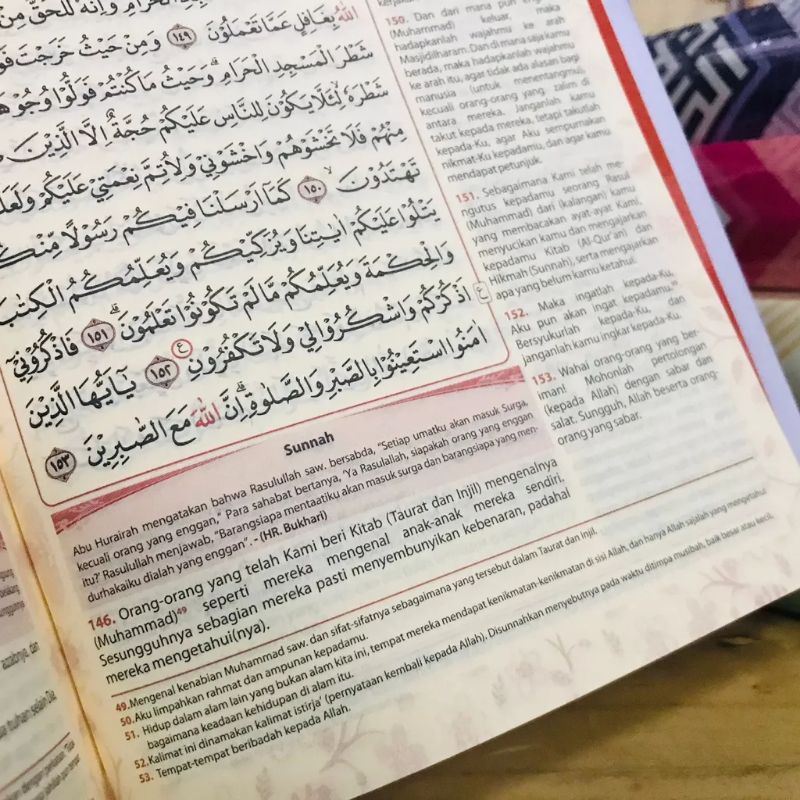 الحرام وانه للحق من
الله بغافل عما تعملون ١٤٩ ومن حيث خرجت
شطر المسجد الحرام وحيث ما كنتم فولوا وجوه
شطره لئلا يكون للناس عليكم حجة الا الذين
منهم فلا تخشوهم واخشوني ولاتم نعمتي عليكم ولعل
تهتدون ١٥٠ كما ارسلنا فيكم رسولا منك
يتلوا عليكم ايتنا ويزكيكم ويعلمكم الكتب
والحكمة ويعلمكم ما لم تكونوا تعلمون ١٥١ فاذكروني
اذكركم واشكروا لي ولا تكفرون ١٥٢ يايها الذين
امنوا استعينوا بالصبر والصلوة ان الله مع الصبرين ١٥٣
ع
150. Dan dari mana pun
(Muhammad) keluar, maka
hadapkanlah wajahmu ke arah
Masjidilharam. Dan di mana saja kamu
berada, maka hadapkanlah wajahmu
ke arah itu, agar tidak ada alasan bagi
manusia (untuk menentangmu),
kecuali orang-orang yang zalim di
antara mereka. Janganlah kamu
takut kepada mereka, tetapi takutlah
kepada-Ku, agar Aku sempurnakan
nikmat-Ku kepadamu, dan agar kamu
mendapat petunjuk.
151. Sebagaimana Kami telah me-
ngutus kepadamu seorang Rasul
(Muhammad) dari (kalangan) kamu
yang membacakan ayat-ayat Kami,
menyucikan kamu dan mengajarkan
kepadamu Kitab (Al-Qur'an) dan
Hikmah (Sunnah), serta mengajarkan
apa yang belum kamu ketahui.
152. Maka ingatlah kepada-Ku,
Aku pun akan ingat kepadamu.
Bersyukurlah kepada-Ku, dan
janganlah kamu ingkar kepada-Ku.
153. Wahai orang-orang yang ber-
iman! Mohonlah pertolongan
(kepada Allah) dengan sabar dan
salat. Sungguh, Allah beserta orang-
orang yang sabar.
Sunnah
Abu Hurairah mengatakan bahwa Rasulullah saw. bersabda, "Setiap umatku akan masuk Surga,
kecuali orang yang enggan," Para sahabat bertanya, 'Ya Rasulallah, siapakah orang yang enggan
itu?' Rasulullah menjawab, "Barangsiapa mentaatiku akan masuk surga dan barangsiapa yang men-
durhakaiku dialah yang enggan". - (HR. Bukhari)
146. Orang-orang yang telah Kami beri Kitab (Taurat dan Injil) mengenalnya
(Muhammad)49 seperti mereka mengenal anak-anak mereka sendiri.
Sesungguhnya sebagian mereka pasti menyembunyikan kebenaran, padahal
mereka mengetahui(nya).
49.Mengenal kenabian Muhammad saw. dan sifat-sifatnya sebagaimana yang tersebut dalam Taurat dan Injil.
50.Aku limpahkan rahmat dan ampunan kepadamu.
51. Hidup dalam alam lain yang bukan alam kita ini, tempat mereka mendapat kenikmatan-kenikmatan di sisi Allah, dan hanya Allah sajalah yang mengetahui
bagaimana keadaan kehidupan di alam itu.
52.Kalimat ini dinamakan kalimat istirja' (pernyataan kembali kepada Allah). Disunnahkan menyebutnya pada waktu ditimpa musibah, baik besar atau kecil.
53. Tempat-tempat beribadah kepada Allah.